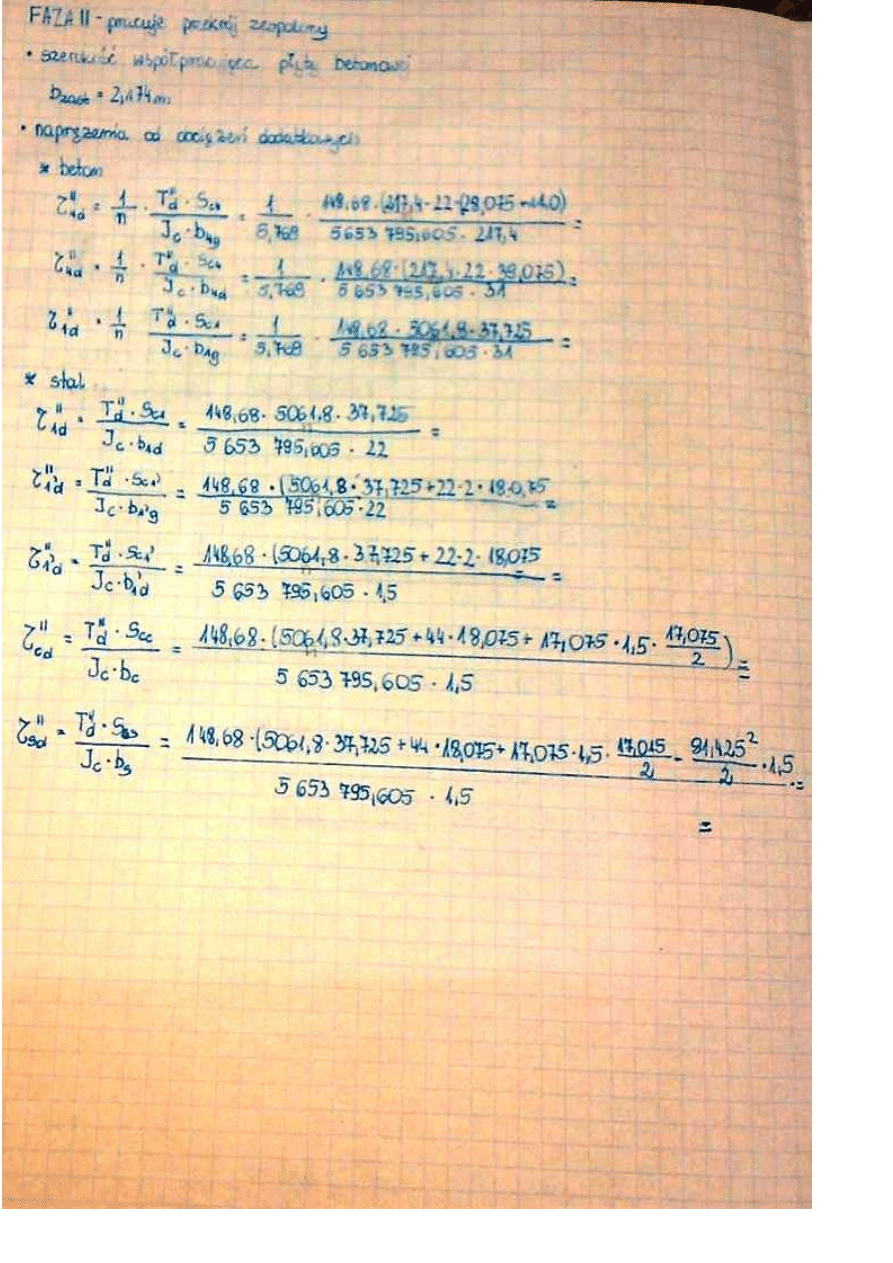 FAZA II - pracuje przekrój zespolony
• szerokość współpracująca płyty betonowej
b zast = 2,174 m
• naprężenia od obciążeń dodatkowych
* beton
τ"4d = 1/n · T"d · Sc4 / Jc · b4g = 1/5,769 · 148,68 · (217,4 · 22 · (39,075 - 11.0) / 5653 795,605 · 217,4 =
τ"4d = 1/n · T"d · Sc4 / Jc · b4d = 1/5,769 · 148,68 · (217,4 · 22 · 39,075) / 5 653 795,605 · 31 =
τ"1d = 1/n T"d · Sc1 / Jc · b1g = 1/5,769 · 148,68 · 5061,8 · 37,725 / 5 653 795,605 · 31 =
* stal
τ"1d = T"d · Sc1 / Jc · b1d = 148,68 · 5061,8 · 37,725 / 5 653 795,605 · 22 =
τ"1'd = T"d · Sc1' / Jc · b1'g = 148,68 · (5061,8 · 37,725 + 22·2 · 18.075 / 5 653 795,605 · 22 =
τ"1'd = T"d · Sc1' / Jc · b1'd = 148,68 · (5061,8 · 37,725 + 22·2 · 18,075 / 5 653 795,605 · 1,5 =
τ"cd = T"d · Scc / Jc · bc = 148,68 · (5061,8·37,725 + 44 · 18,075 + 17,075 · 1,5 · 17,075/2) / 5 653 795,605 · 1,5 =
= T"d / Jc = 148,68 · (5061,8 · 37,725 + 44 · 18,075 + 17,075 · 1,5 · 17,075/2 - 91,425²/2 · 1,5 / 5 653 795,605 · 1,5 =
=